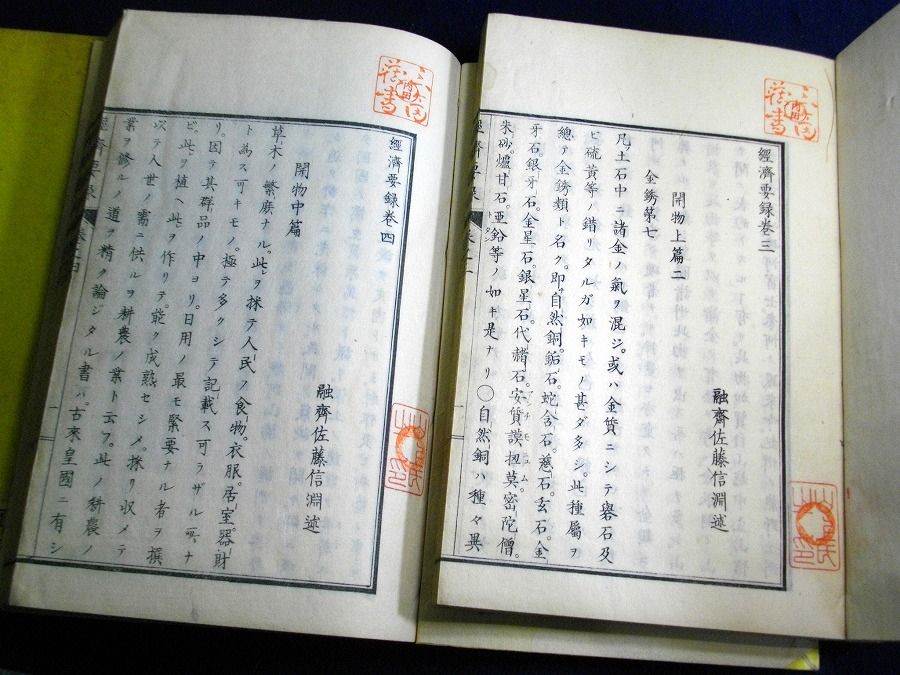 經濟要録卷三
融齊佐藤信淵述
開物上篇二
金銹第七
凡ソ土石中ニ諸金ノ氣ヲ混ジ。或ハ金質ニシテ礜石及
ビ硫黄等ノ錯リタルガ如キモノ甚ダ多シ。此種屬ヲ
總テ金銹類ト名ク。即チ自然銅。鉐石。蛇含石。慈石。玄石。金
牙石。銀牙石。金星石。銀星石。代赭石。安質謨扭莫。密陀僧。
朱砂。爐甘石。亜鉛等ノ如キ是ナリ ○自然銅ハ種々異
經濟要録卷四
融齊佐藤信淵述
開物中篇
草木ノ繁廡ナル。此ヲ採テ人民ノ食物。衣服。居室。器財
ト為ス可キモノ。極テ多クシテ記載ス可ラザル所ナ
リ。因テ其群品ノ中ヨリ。日用ノ最モ緊要ナル者ヲ撰
ビ。此ヲ植ヘ此ヲ作リテ。能ク成熟セシメ。採リ収メテ
以テ人世ノ需ニ供ルヲ耕農ノ業ト云フ。此ノ耕農ノ
業ヲ修ルノ道ヲ精ク論ジタル書ハ。古來皇國ニ有シ